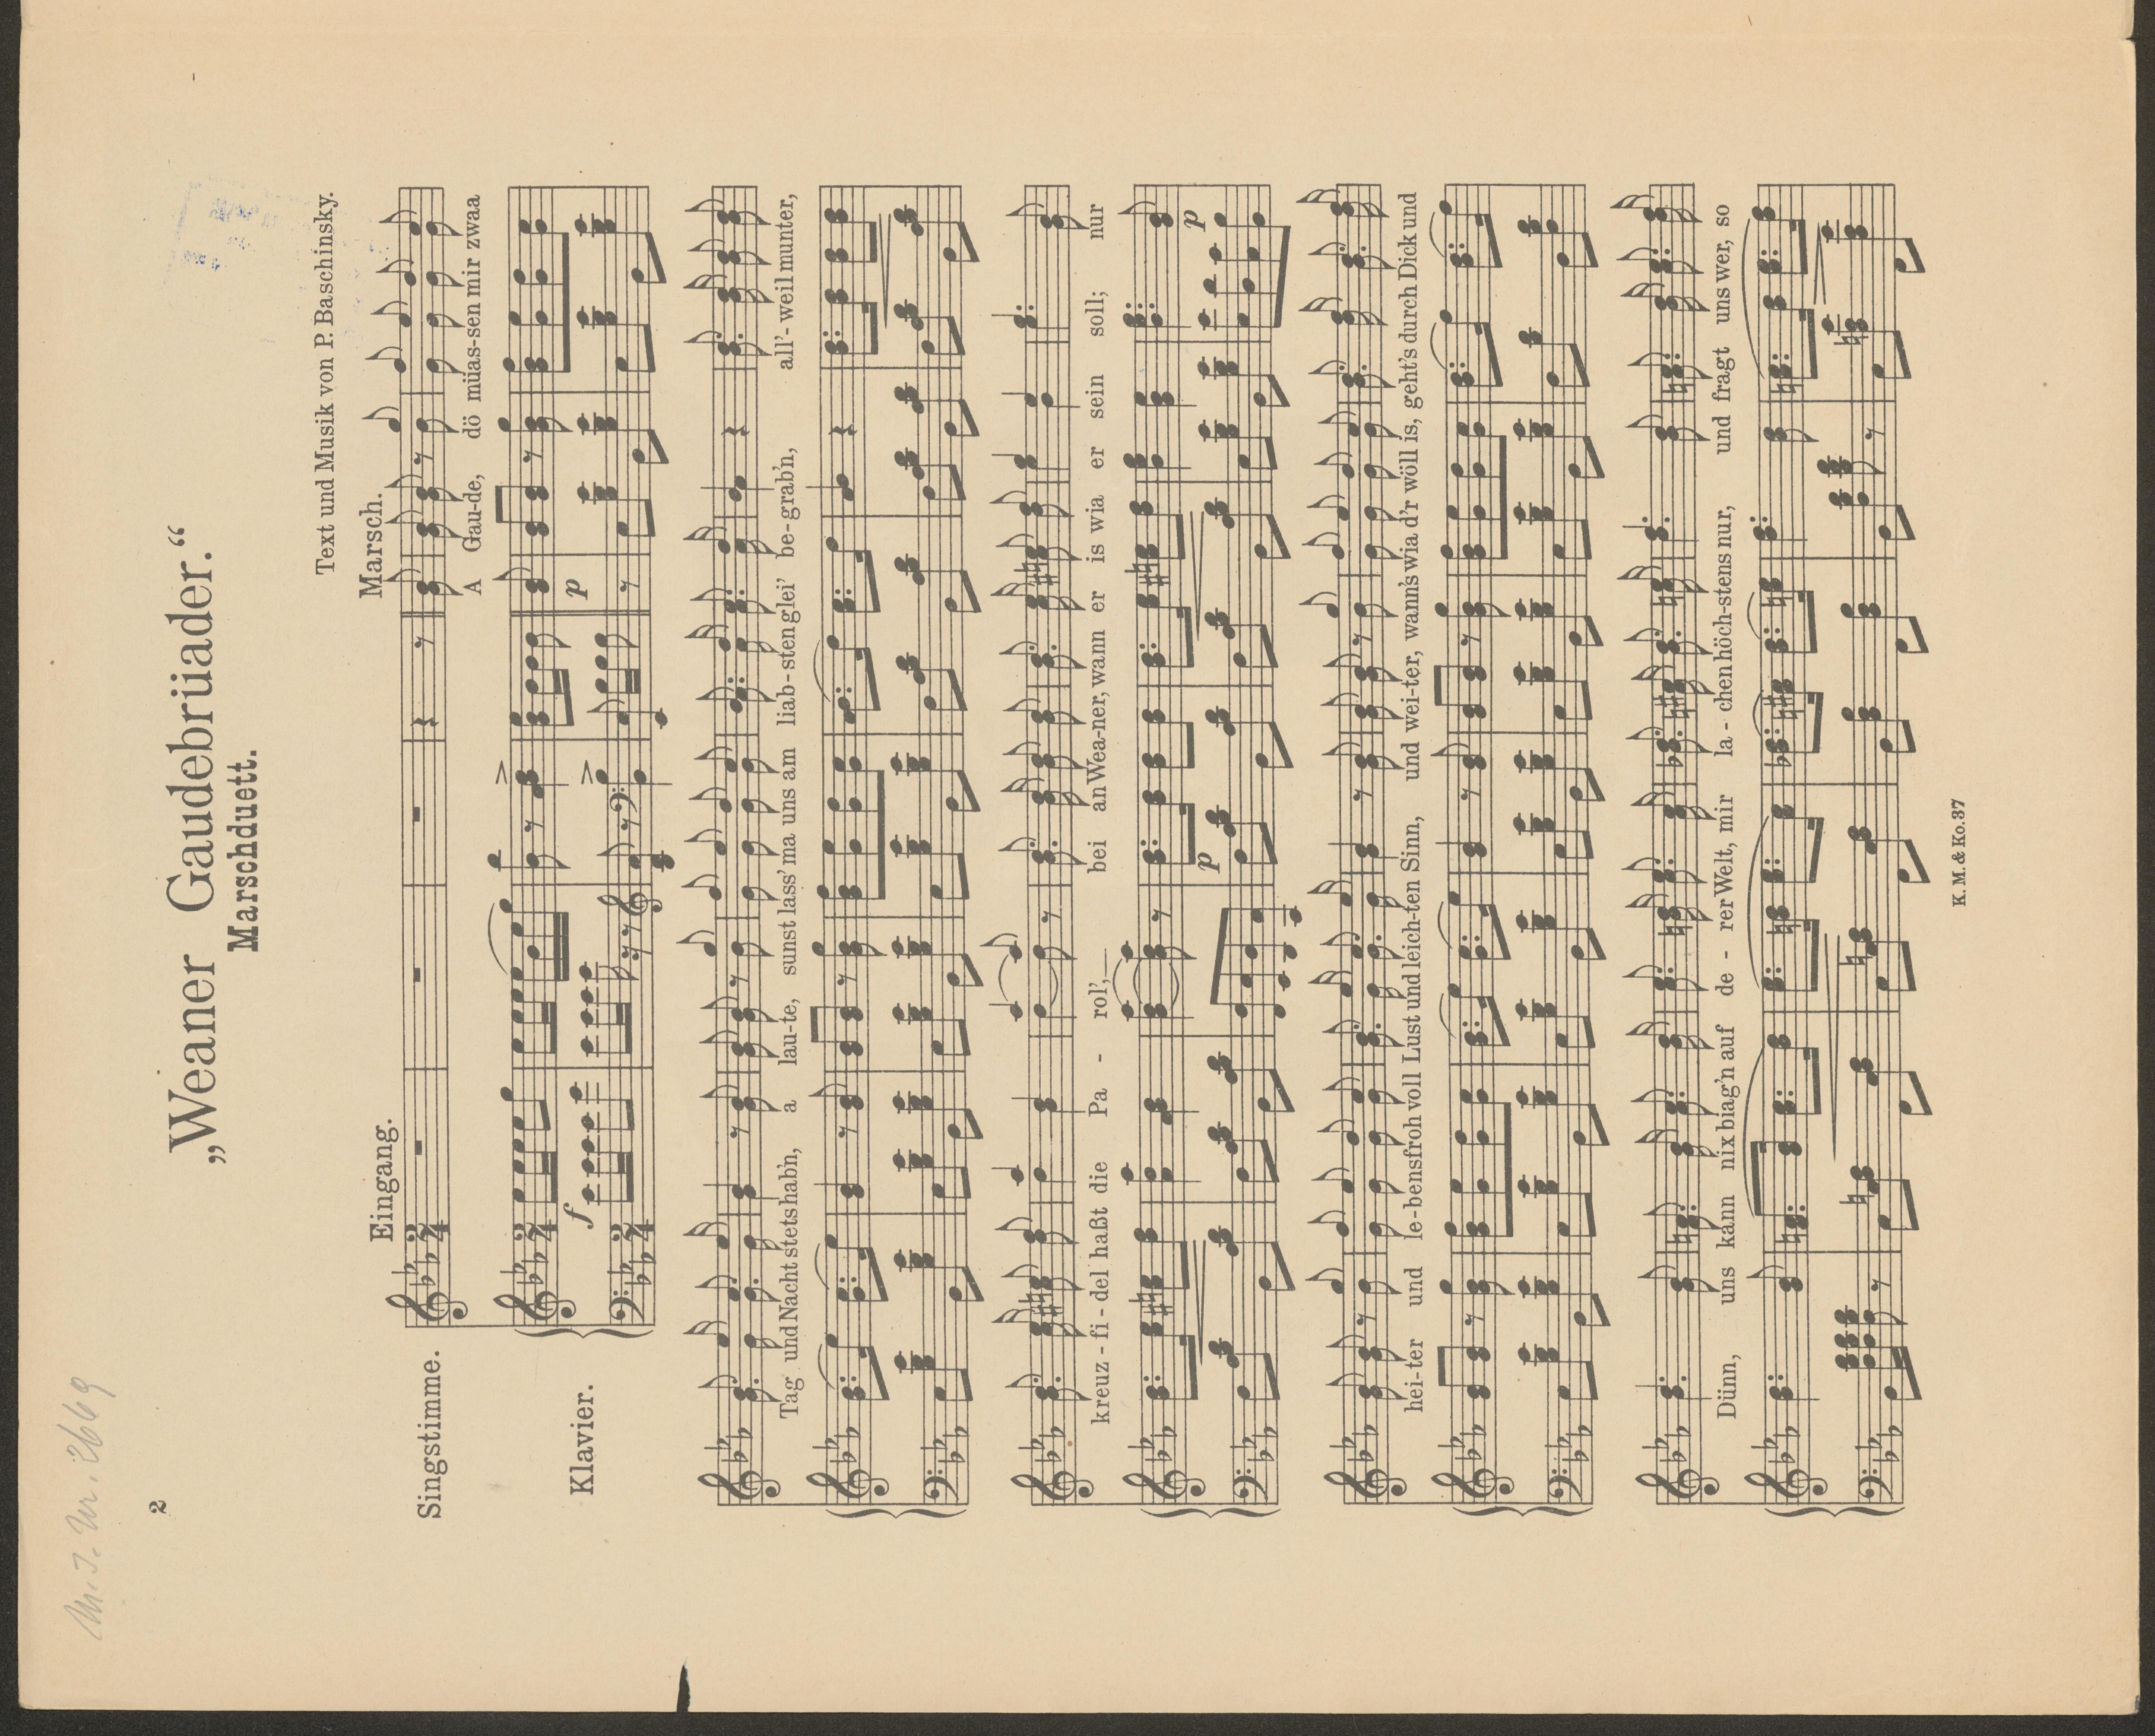 M. I. Nr. 2669
2
„Weaner Gaudebrüader.“
Marschduett.
Text und Musik von P. Baschinsky.
Eingang.
Marsch.
Singstimme.
A Gau-de, dö müas-sen mir zwaa
Klavier.
f
p
Tag und Nacht stets hab'n, a lau-te, sunst lass' ma uns am liab-sten glei' be-grab'n, all'-weil munter,
kreuz-fi-del haßt die Pa - rol',— bei an Wea-ner, wann er is wia er sein soll; nur
p
p
hei-ter und le-bensfroh voll Lust und leich-ten Sinn, und wei-ter, wann's wia d'r wöll is, geht's durch Dick und
Dünn, uns kann nix biag'n auf de - rer Welt, mir la - chen höch-stens nur, und fragt uns wer, so
K. M. & Ko. 37